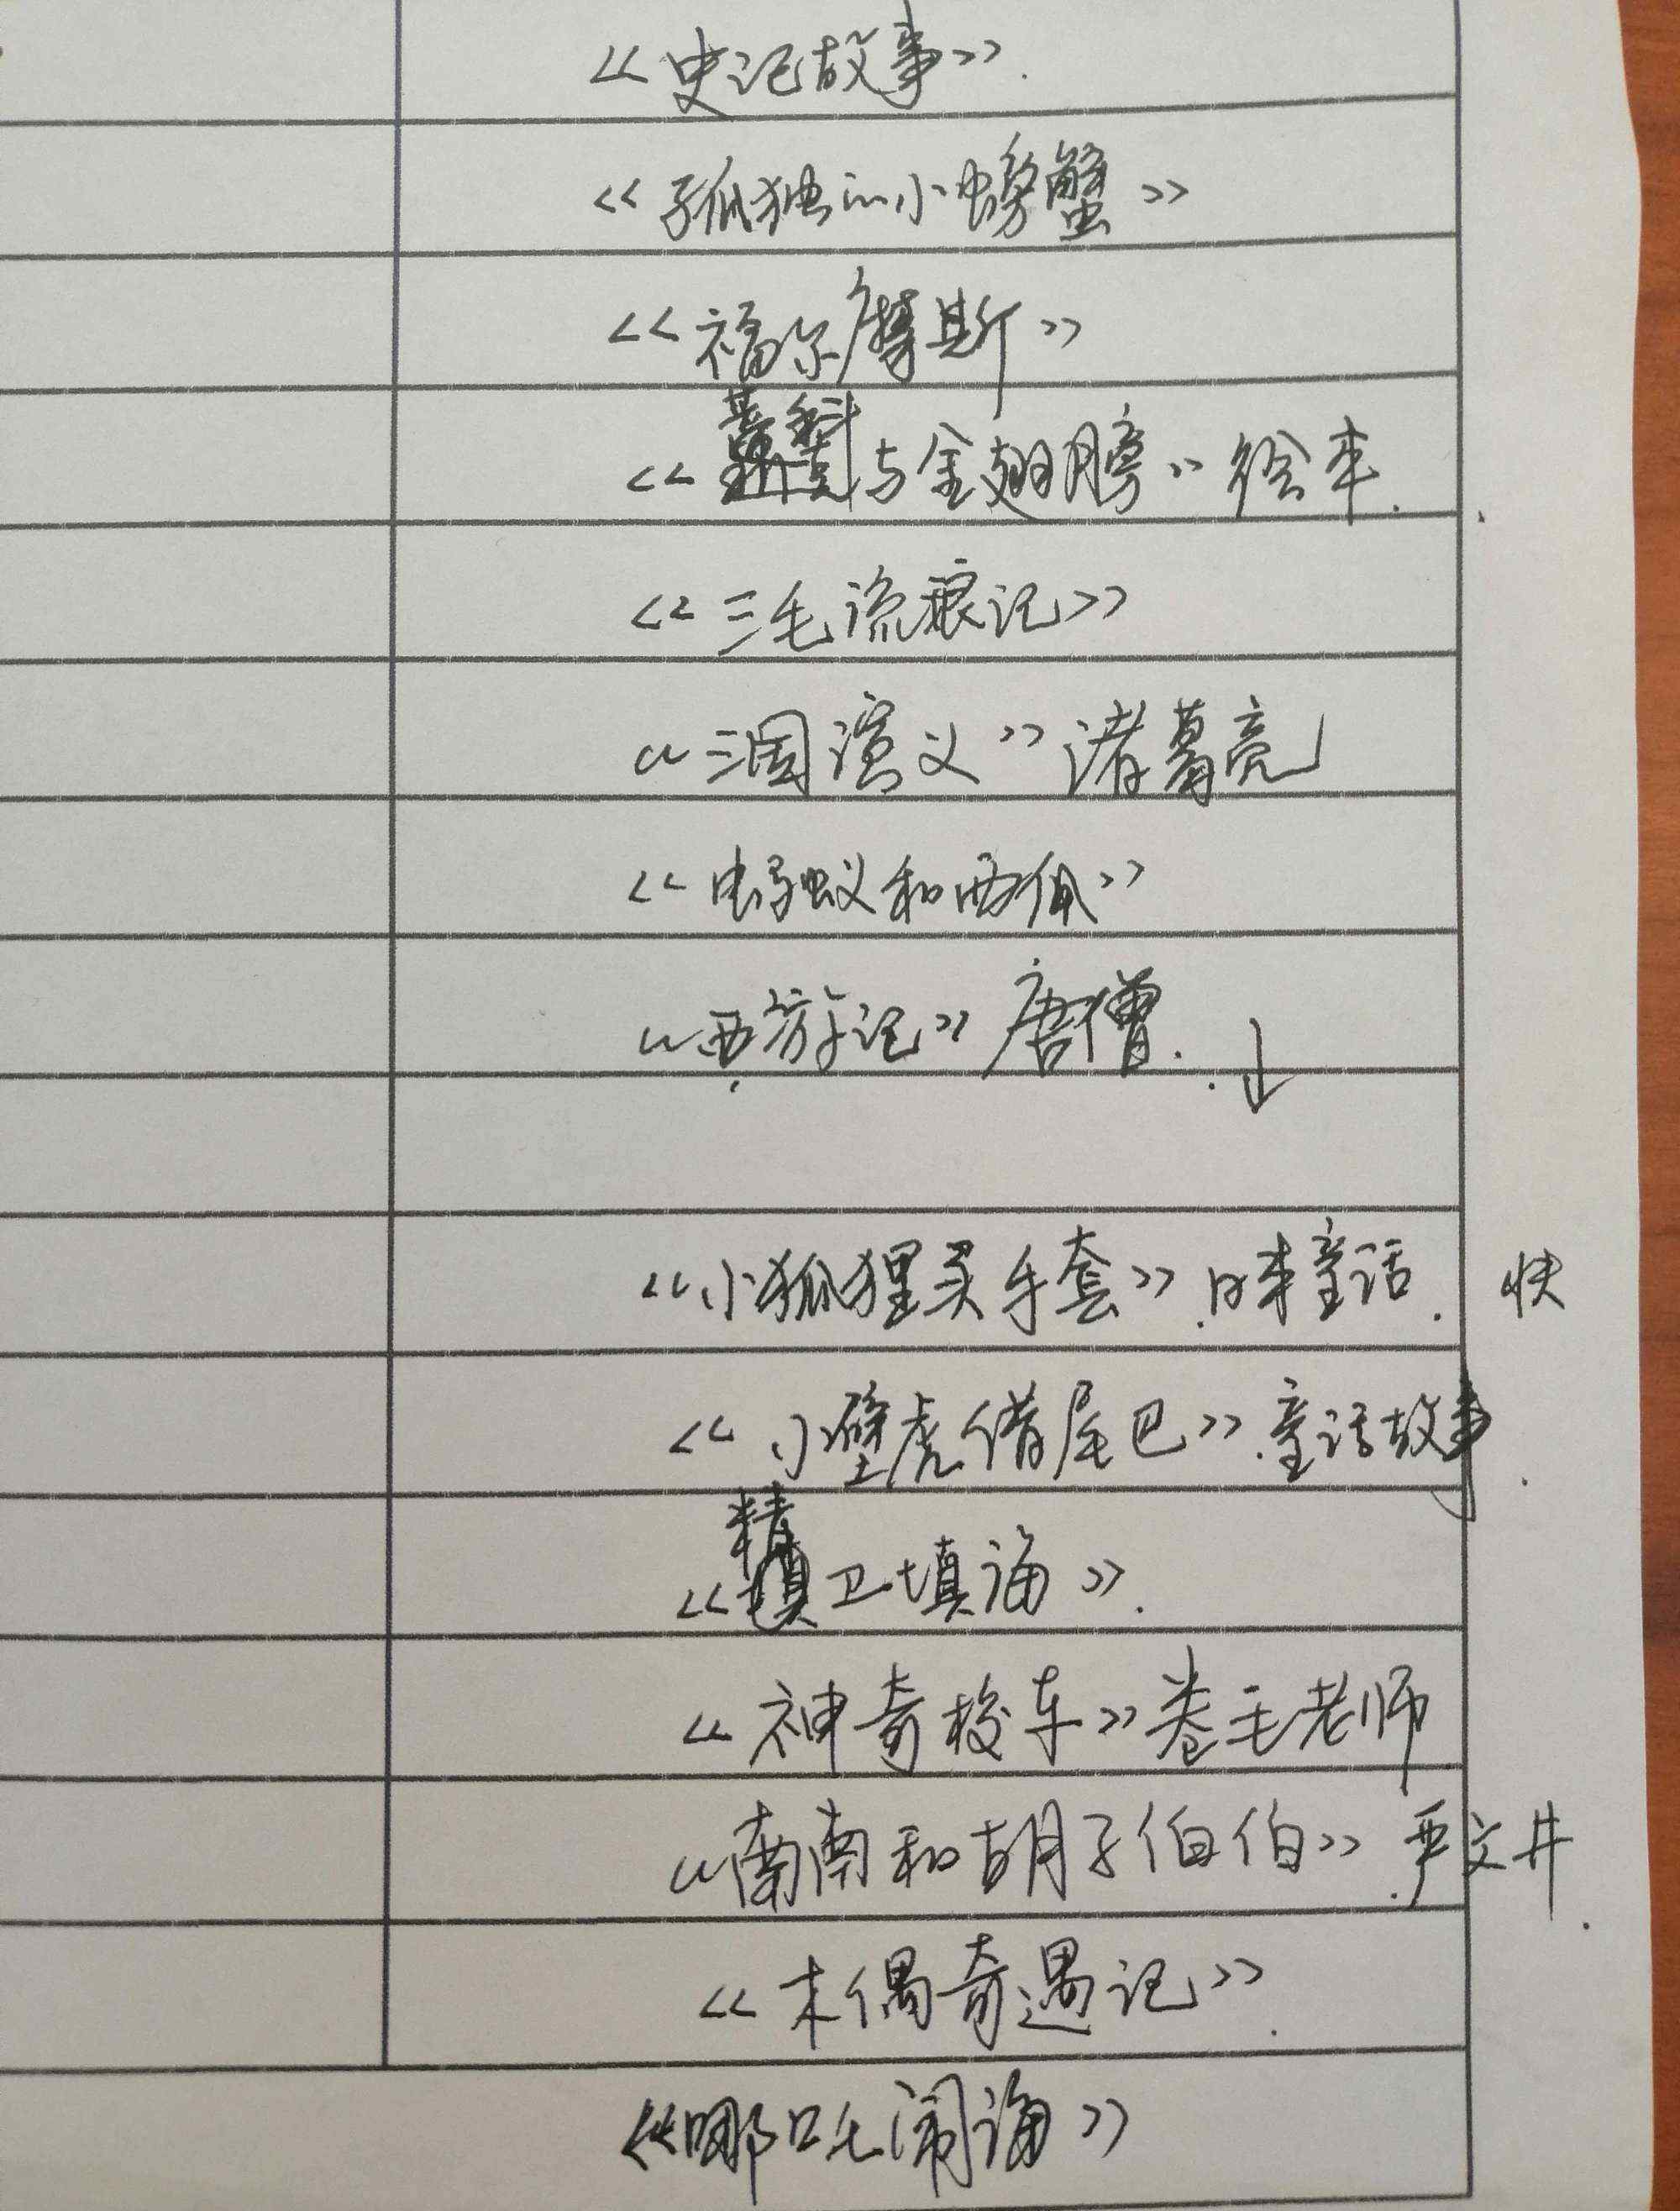 《史记故事》.
《孤独的小螃蟹》
《福尔摩斯》
《与金翅膀》绘本.
《三毛流浪记》
《三国演义》诸葛亮
《蚂蚁和西瓜》
《西游记》唐僧.
《小狐狸买手套》.日本童话. 快
《小壁虎借尾巴》.童话故事.
《精卫填海》.
《神奇校车》卷毛老师
《南南和胡子伯伯》.严文井.
《木偶奇遇记》.
《哪吒闹海》